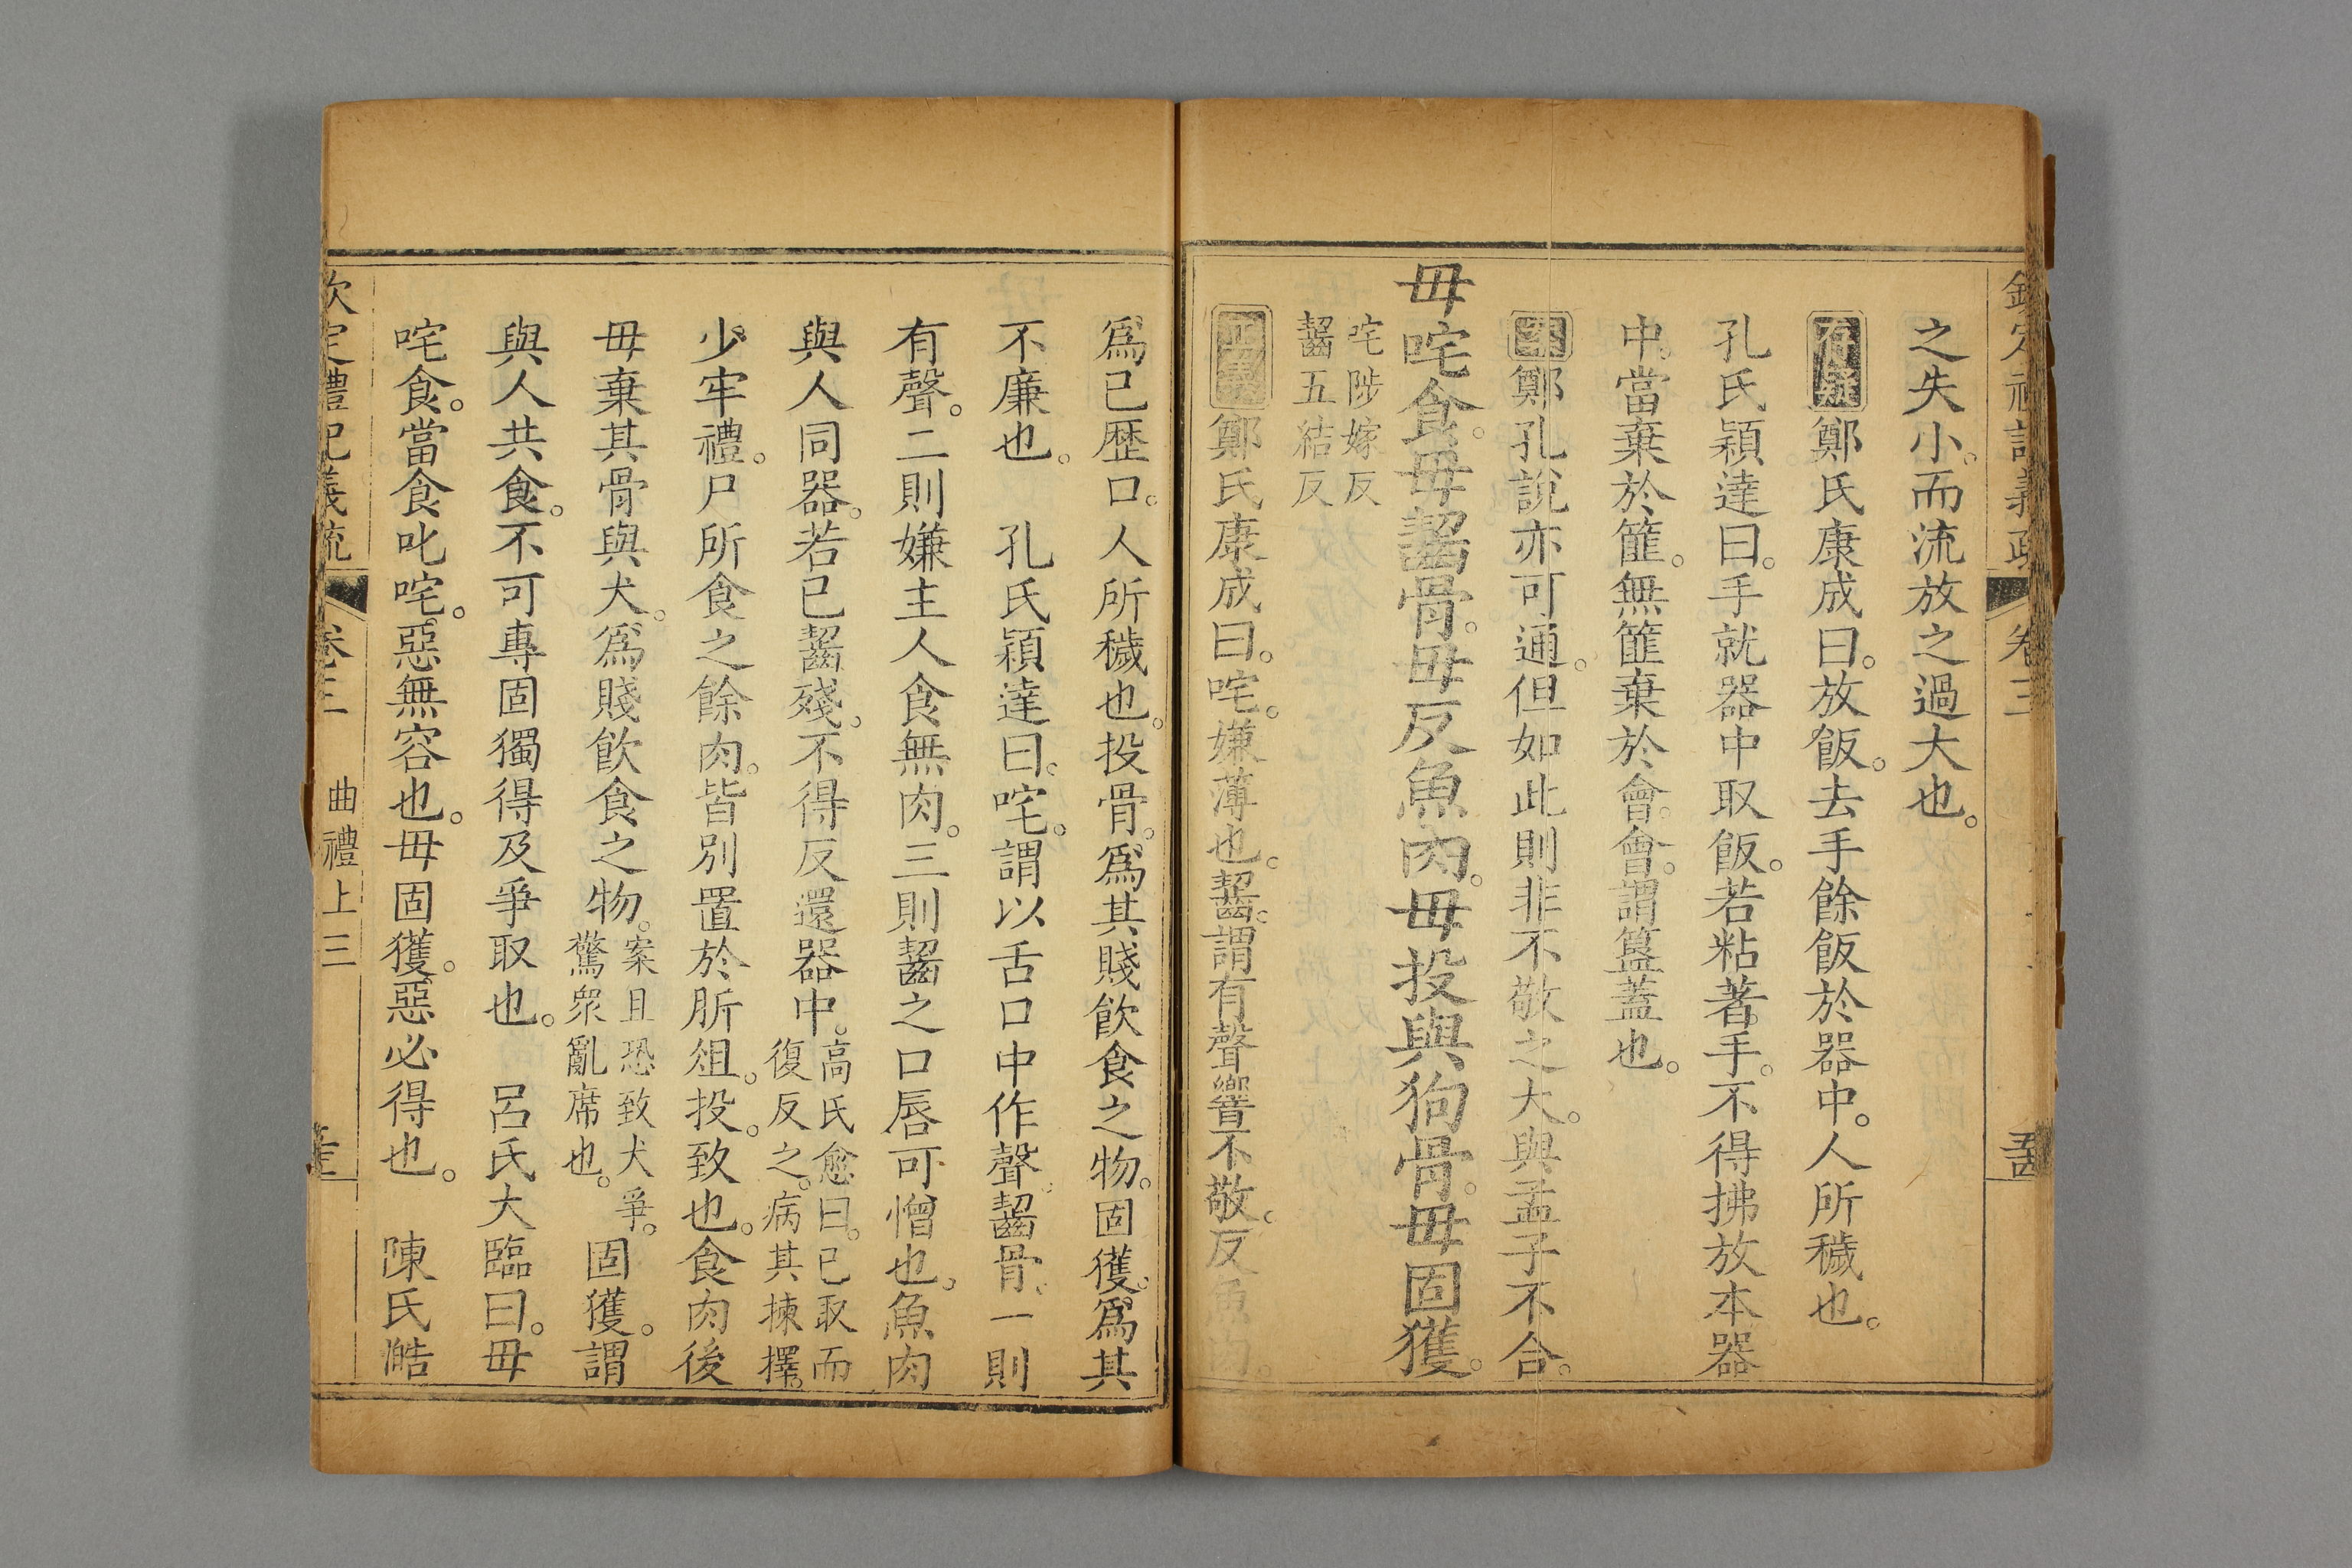 欽定禮記義疏 卷三
之失小。而流放之過大也。
存疑 鄭氏康成曰。放飯。去手餘飯於器中。人所穢也。
孔氏穎達曰。手就器中取飯。若粘著手。不得拂放本器
中。當棄於篚。無篚棄於會。會。謂簋蓋也。
案 鄭孔說亦可通。但如此則非不敬之大。與孟子不合。
毋咤食。毋齧骨。毋反魚肉。毋投與狗骨。毋固獲。
咤陟嫁反
齧五結反
正義 鄭氏康成曰。咤。嫌薄也。齧。謂有聲響不敬。反魚肉。
爲已歷口。人所穢也。投骨。爲其賤飲食之物。固獲。爲其
不廉也。 孔氏穎達曰。咤。謂以舌口中作聲。齧骨。一則
有聲。二則嫌主人食無肉。三則齧之口唇可憎也。魚肉
與人同器。若已齧殘。不得反還器中。高氏愈曰。已取而
復反之。病其揀擇。
少牢禮。尸所食之餘肉。皆別置於肵俎。投。致也。食肉後
毋棄其骨與犬。爲賤飲食之物。案且恐致犬爭。
驚衆亂席也。
固獲。謂
與人共食。不可專固獨得及爭取也。 呂氏大臨曰。毋
咤食。當食叱咤。惡無容也。毋固獲。惡必得也。 陳氏澔
欽定禮記義疏 卷三 曲禮上三